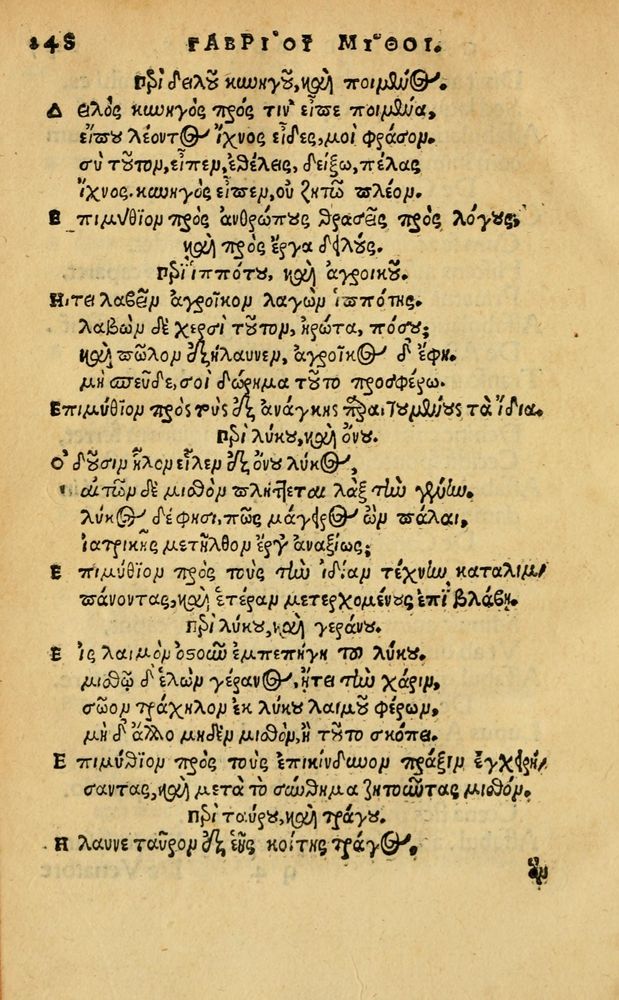 248 ΓΑΒΡΙ´ΟΥ ΜΙ῀ΘΟΙ.
Περὶ δειλοῦ κωυηγοῦ, καὶ ποιμένος.
Δειλὸς κυνηγὸς πρός τιν' εἶπε ποιμένα,
εἴπου λέοντος ἴχνος εἶδες, μοι φράσον.
σὺ τοῦτον, εἶπεν, ἐθέλεις, δείξω, πέλας
ἴχνος. κυνηγὸς εἶπεν, οὐ ζητῶ πλέον.
Ἐπιμύθιον πρὸς ἀνθρώπους θρασεῖς πρὸς λόγους,
καὶ πρὸς ἔργα δειλούς.
Περὶ ἱππότου, καὶ ἀγροίκου.
Ηιτει λαβεῖν ἀγροῖκον λαγὼν ἱππότης.
λαβὼν δὲ χερσὶ τοῦτον, ἠρώτα, πόσου;
καὶ πῶλον ἐξήλαυνεν, ἀγροῖκος δ' ἔφη.
μὴ σπεῦδε, σοὶ δώρημα τοῦτο προσφέρω.
Επιμύθιον πρὸς τοὺς ἐξ ἀνάγκης προϊεμένους τὰ ἴδια.
Περὶ λύκου, καὶ ὄνου.
Ὀδοῦσιν ἧλον εἷλεν ἐξ ὄνου λύκος,
αἰτῶν δὲ μισθὸν πλήττεται λὰξ τὴν γένυν.
λύκος δ' ἔφησι, πῶς μάγειρος ὢν πάλαι,
ἰατρικῆς μετῆλθον ἔργον ἀναξίως;
Ἐπιμύθιον πρὸς τοὺς τὴν ἰδίαν τέχνην καταλιμ-
πάνοντας, καὶ ἑτέραν μετερχομένους ἐπὶ βλάβῃ.
Περὶ λύκου, καὶ γεράνου.
Εἰς λαιμὸν ὀστοῦν ἐμπεπήγη τῷ λύκου.
μισθῷ δ' ἑλὼν γέρανος, ᾔτει τὴν χάριν,
σῶον τράχηλον ἐκ λύκου λαιμοῦ φέρων,
μὴ δ' ἄλλο μηδὲν μισθὸν, ἢ τοῦτο σκόπει.
Ἐπιμύθιον πρὸς τοὺς ἐπικίνδυνον πρᾶξιν ἐγχειρή-
σαντας, καὶ μετὰ τὸ σύνθημα ζητοῦντας μισθόν.
Περὶ ταύρου, καὶ τράγου.
Ηλαυνε ταῦρον ἐξ ἑῆς κοίτης τράγος,